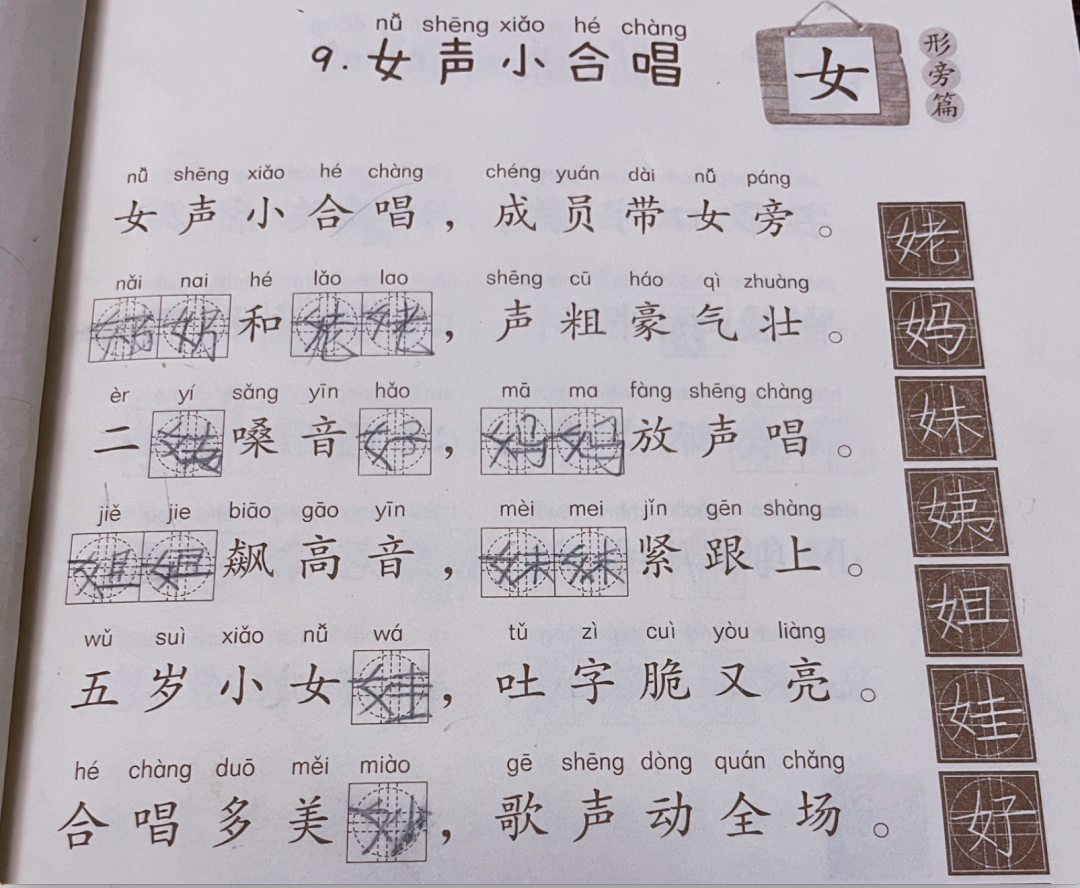 nǚ shēng xiǎo hé chàng
9.女声小合唱
女
形旁篇
nǚ shēng xiǎo hé chàng chéng yuán dài nǚ páng
女声小合唱，成员带女旁。
nǎi nai hé lǎo lao shēng cū háo qì zhuàng
奶奶和姥姥，声粗豪气壮。
èr yí sǎng yīn hǎo mā ma fàng shēng chàng
二姨嗓音好，妈妈放声唱。
jiě jie biāo gāo yīn mèi mei jǐn gēn shàng
姐姐飙高音，妹妹紧跟上。
wǔ suì xiǎo nǚ wá tǔ zì cuì yòu liàng
五岁小女娃，吐字脆又亮。
hé chàng duō měi miào gē shēng dòng quán chǎng
合唱多美妙，歌声动全场。
姥
妈
妹
姨
姐
娃
好